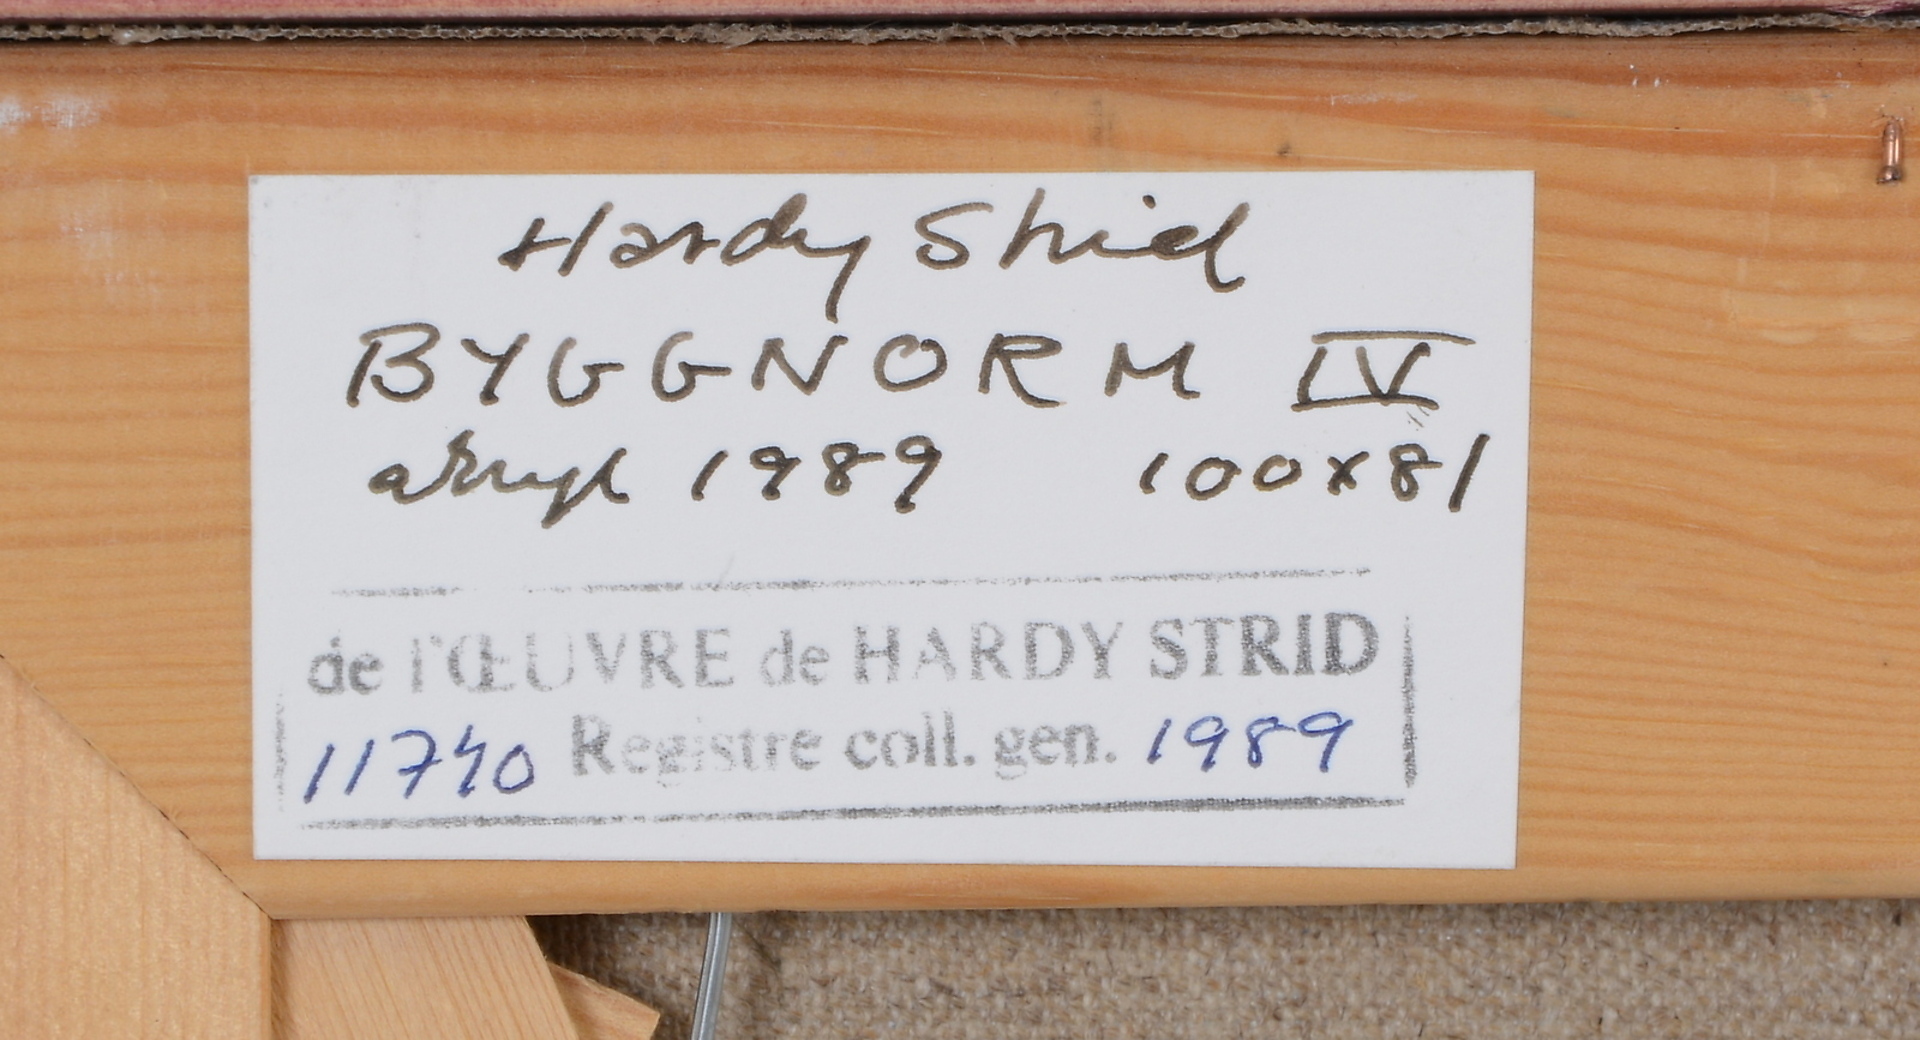 Hardy Strid
BYGGNORM IV
akryl 1989 100x81
de l'ŒUVRE de HARDY STRID
11740 Registre coll. gen. 1989